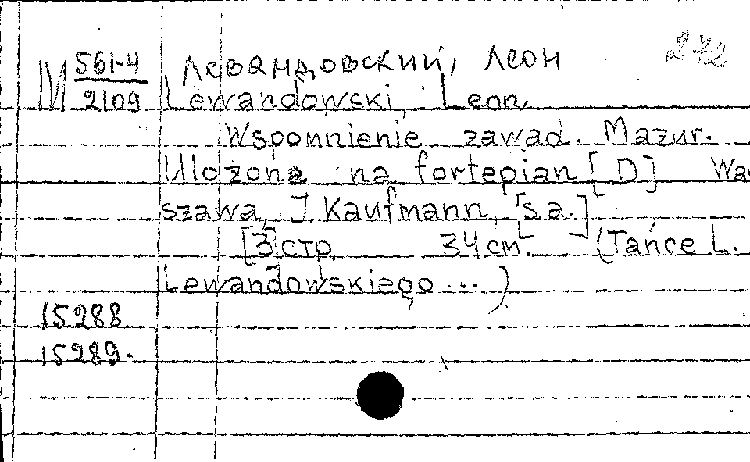 М 561-4 Левандовский, Леон 272
2109 Lewandowski, Leon.
Wspomnienie zawad. Mazur.
Ulożona na fortepian [D] Wa
szawa, J. Kaufmann, [s.a.]
[3] стр 34 см. (Tańce L.
Lewandowskiego ...)
15288
15289.